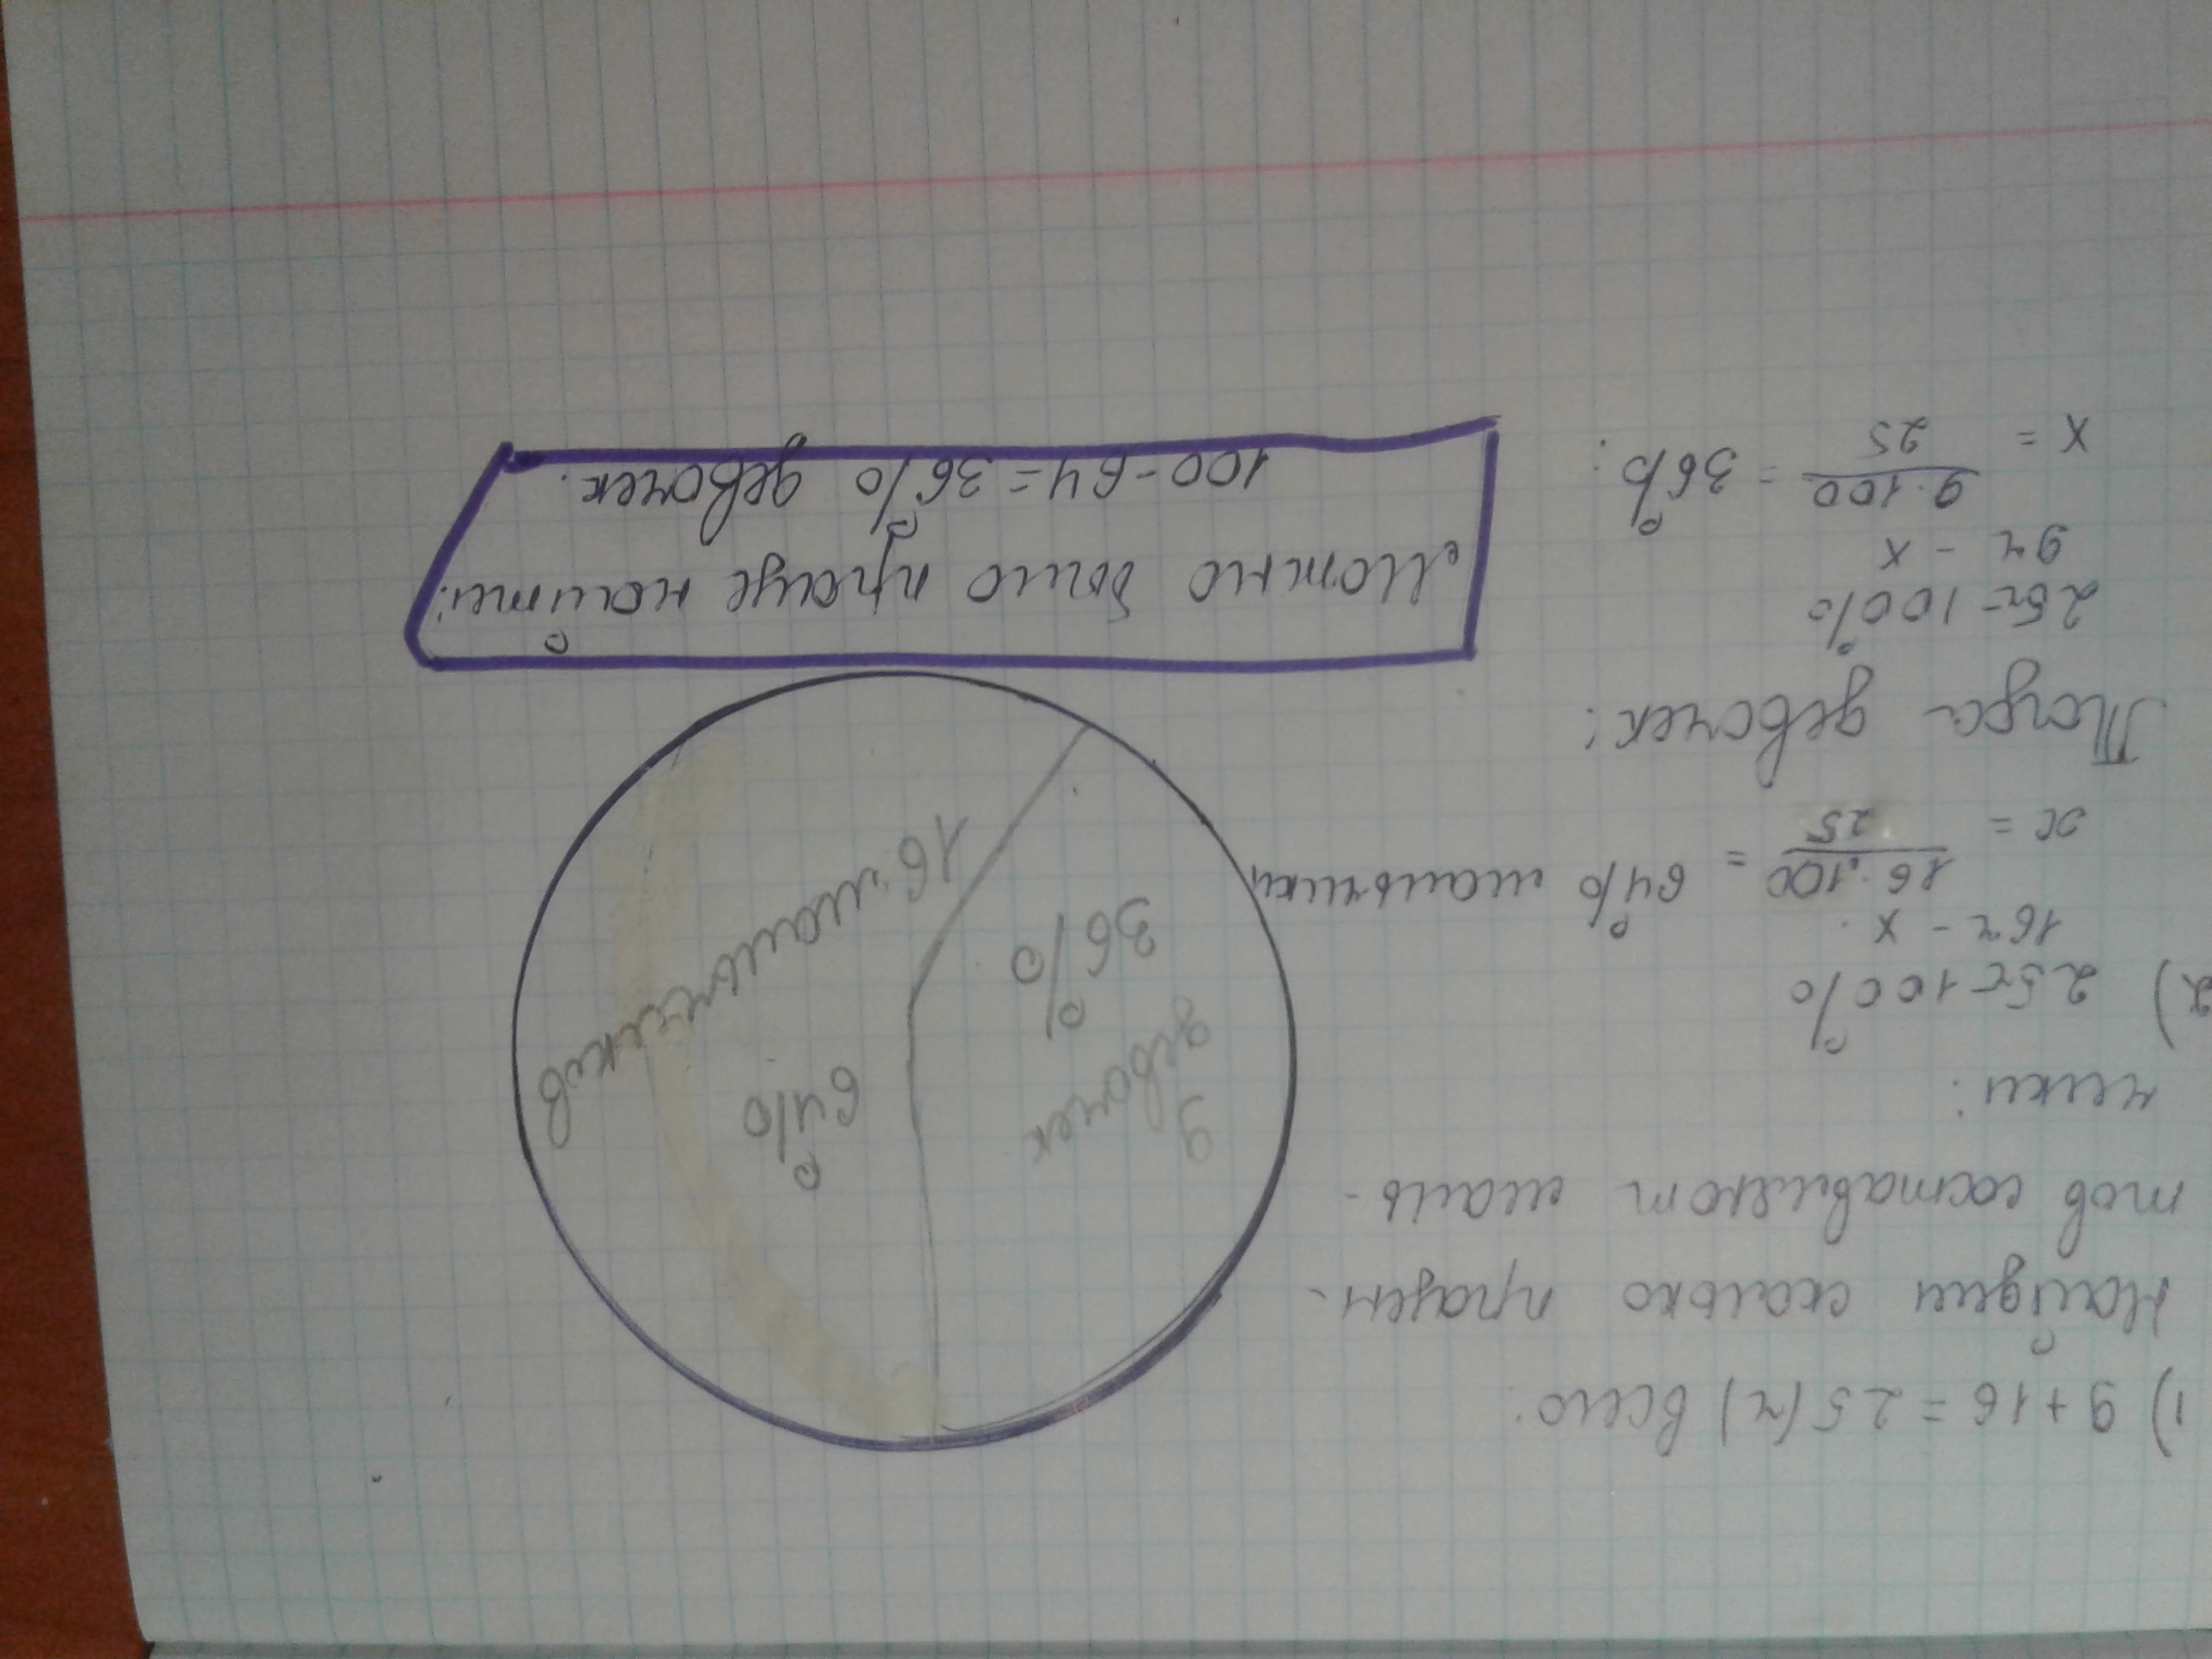 1) 9+16 = 25 (ч) всего.
Найдём сколько процен-
тов составляют маль-
чики:
2) 25ч - 100%
16ч - x
x = 16·100/25 = 64% мальчики
Тогда девочек:
25ч - 100%
9ч - x
x = 9·100/25 = 36%.
9
девочек
36%
64%
16 мальчиков
Можно было проще найти:
100-64=36% девочек.